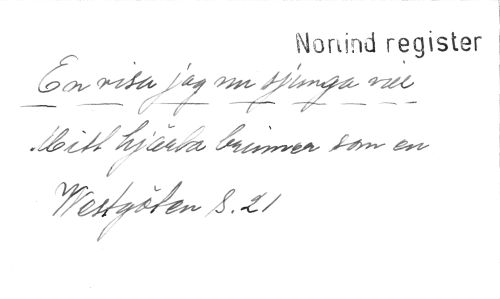 Norlind register
En visa jag nu sjunga vill
Mitt hjärta brinner som en
Westgöten S. 21